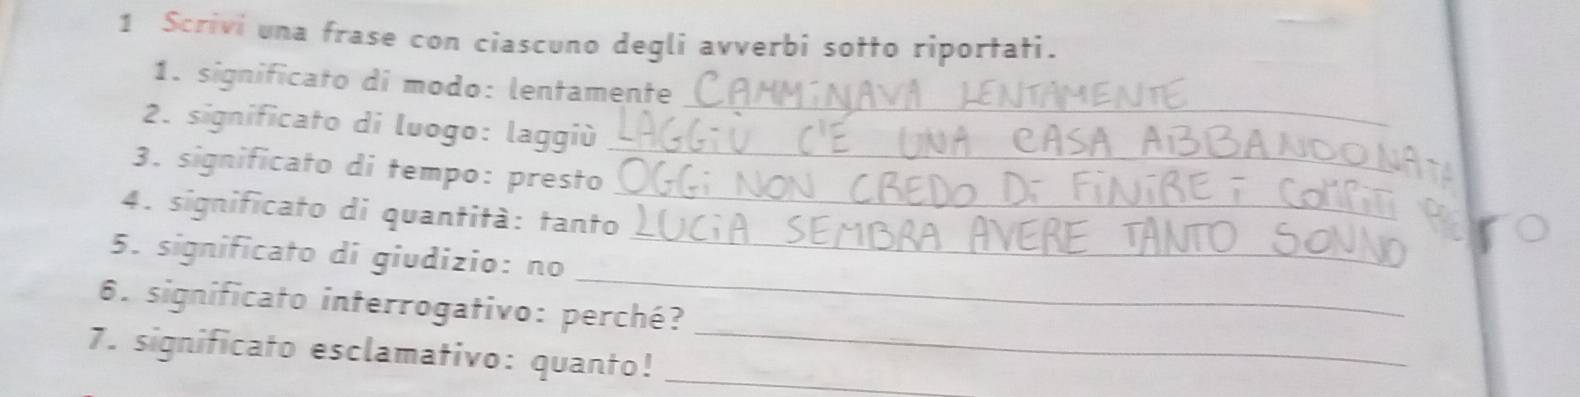 1 Scrivi una frase con ciascuno degli avverbi sotto riportati.
1. significato di modo: lentamente CAMMINAVA LENTAMENTE
2. significato di luogo: laggiù LAGGIÙ C'È UNA CASA ABBANDONATA
3. significato di tempo: presto OGGi NON CREDO Di FiNiRE i COMPiTi
4. significato di quantità: tanto LUCiA SEMBRA AVERE TANTO SONNO
5. significato di giudizio: no
6. significato interrogativo: perché?
7. significato esclamativo: quanto!